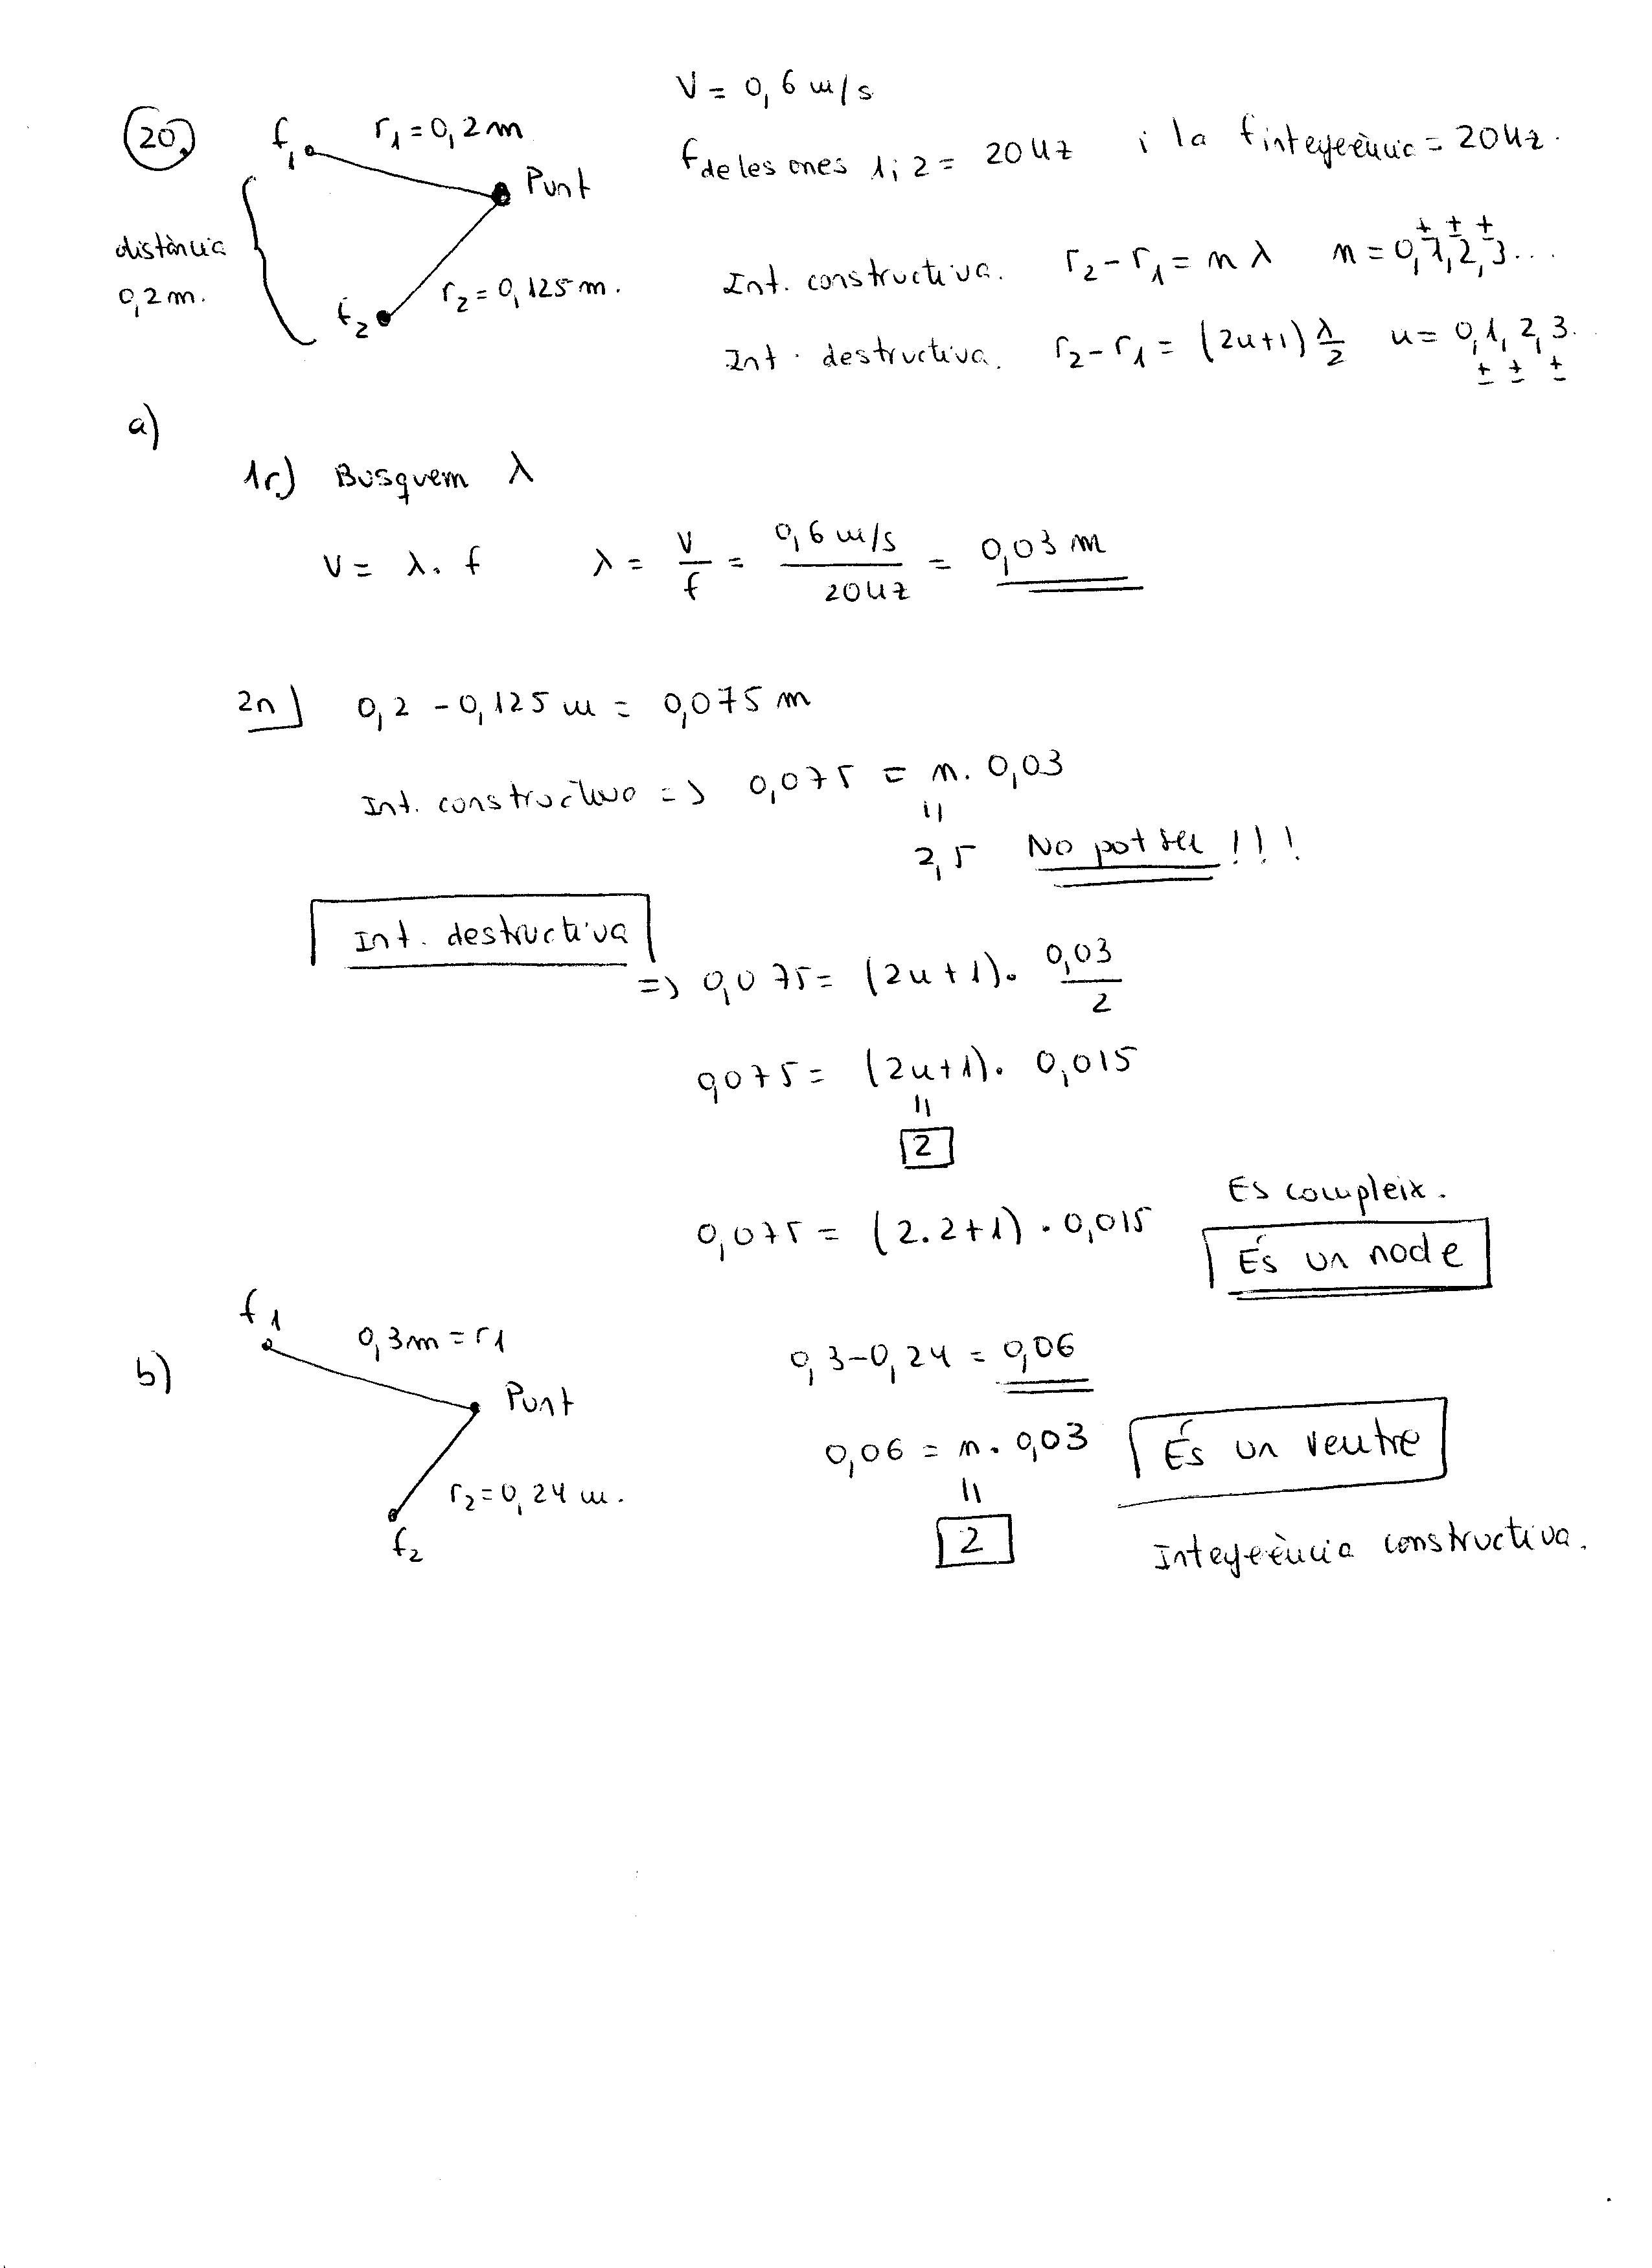 20)
f₁ r₁ = 0,2 m
Punt
distància
0,2 m.
f₂ r₂ = 0,125 m.
V = 0,6 m/s
f de les ones 1 i 2 = 20 Hz i la f interferència = 20 Hz.
Int. constructiva. r₂ - r₁ = n λ n = 0, ±1, ±2, ±3...
Int. destructiva. r₂ - r₁ = (2n+1) λ/2 n = 0, ±1, ±2, ±3.
a)
1r) Busquem λ
V = λ . f λ = V/f = 0,6 m/s / 20 Hz = 0,03 m
2n) 0,2 - 0,125 m = 0,075 m
Int. constructiva => 0,075 = n . 0,03
=
2,5 No pot ser !!!
Int. destructiva
=> 0,075 = (2n+1) . 0,03/2
0,075 = (2n+1) . 0,015
=
2
0,075 = (2.2+1) . 0,015 Es compleix.
És un node
b)
f₁ 0,3 m = r₁
Punt
r₂ = 0,24 m.
f₂
0,3 - 0,24 = 0,06
0,06 = n . 0,03 És un ventre
=
2
Interferència constructiva.